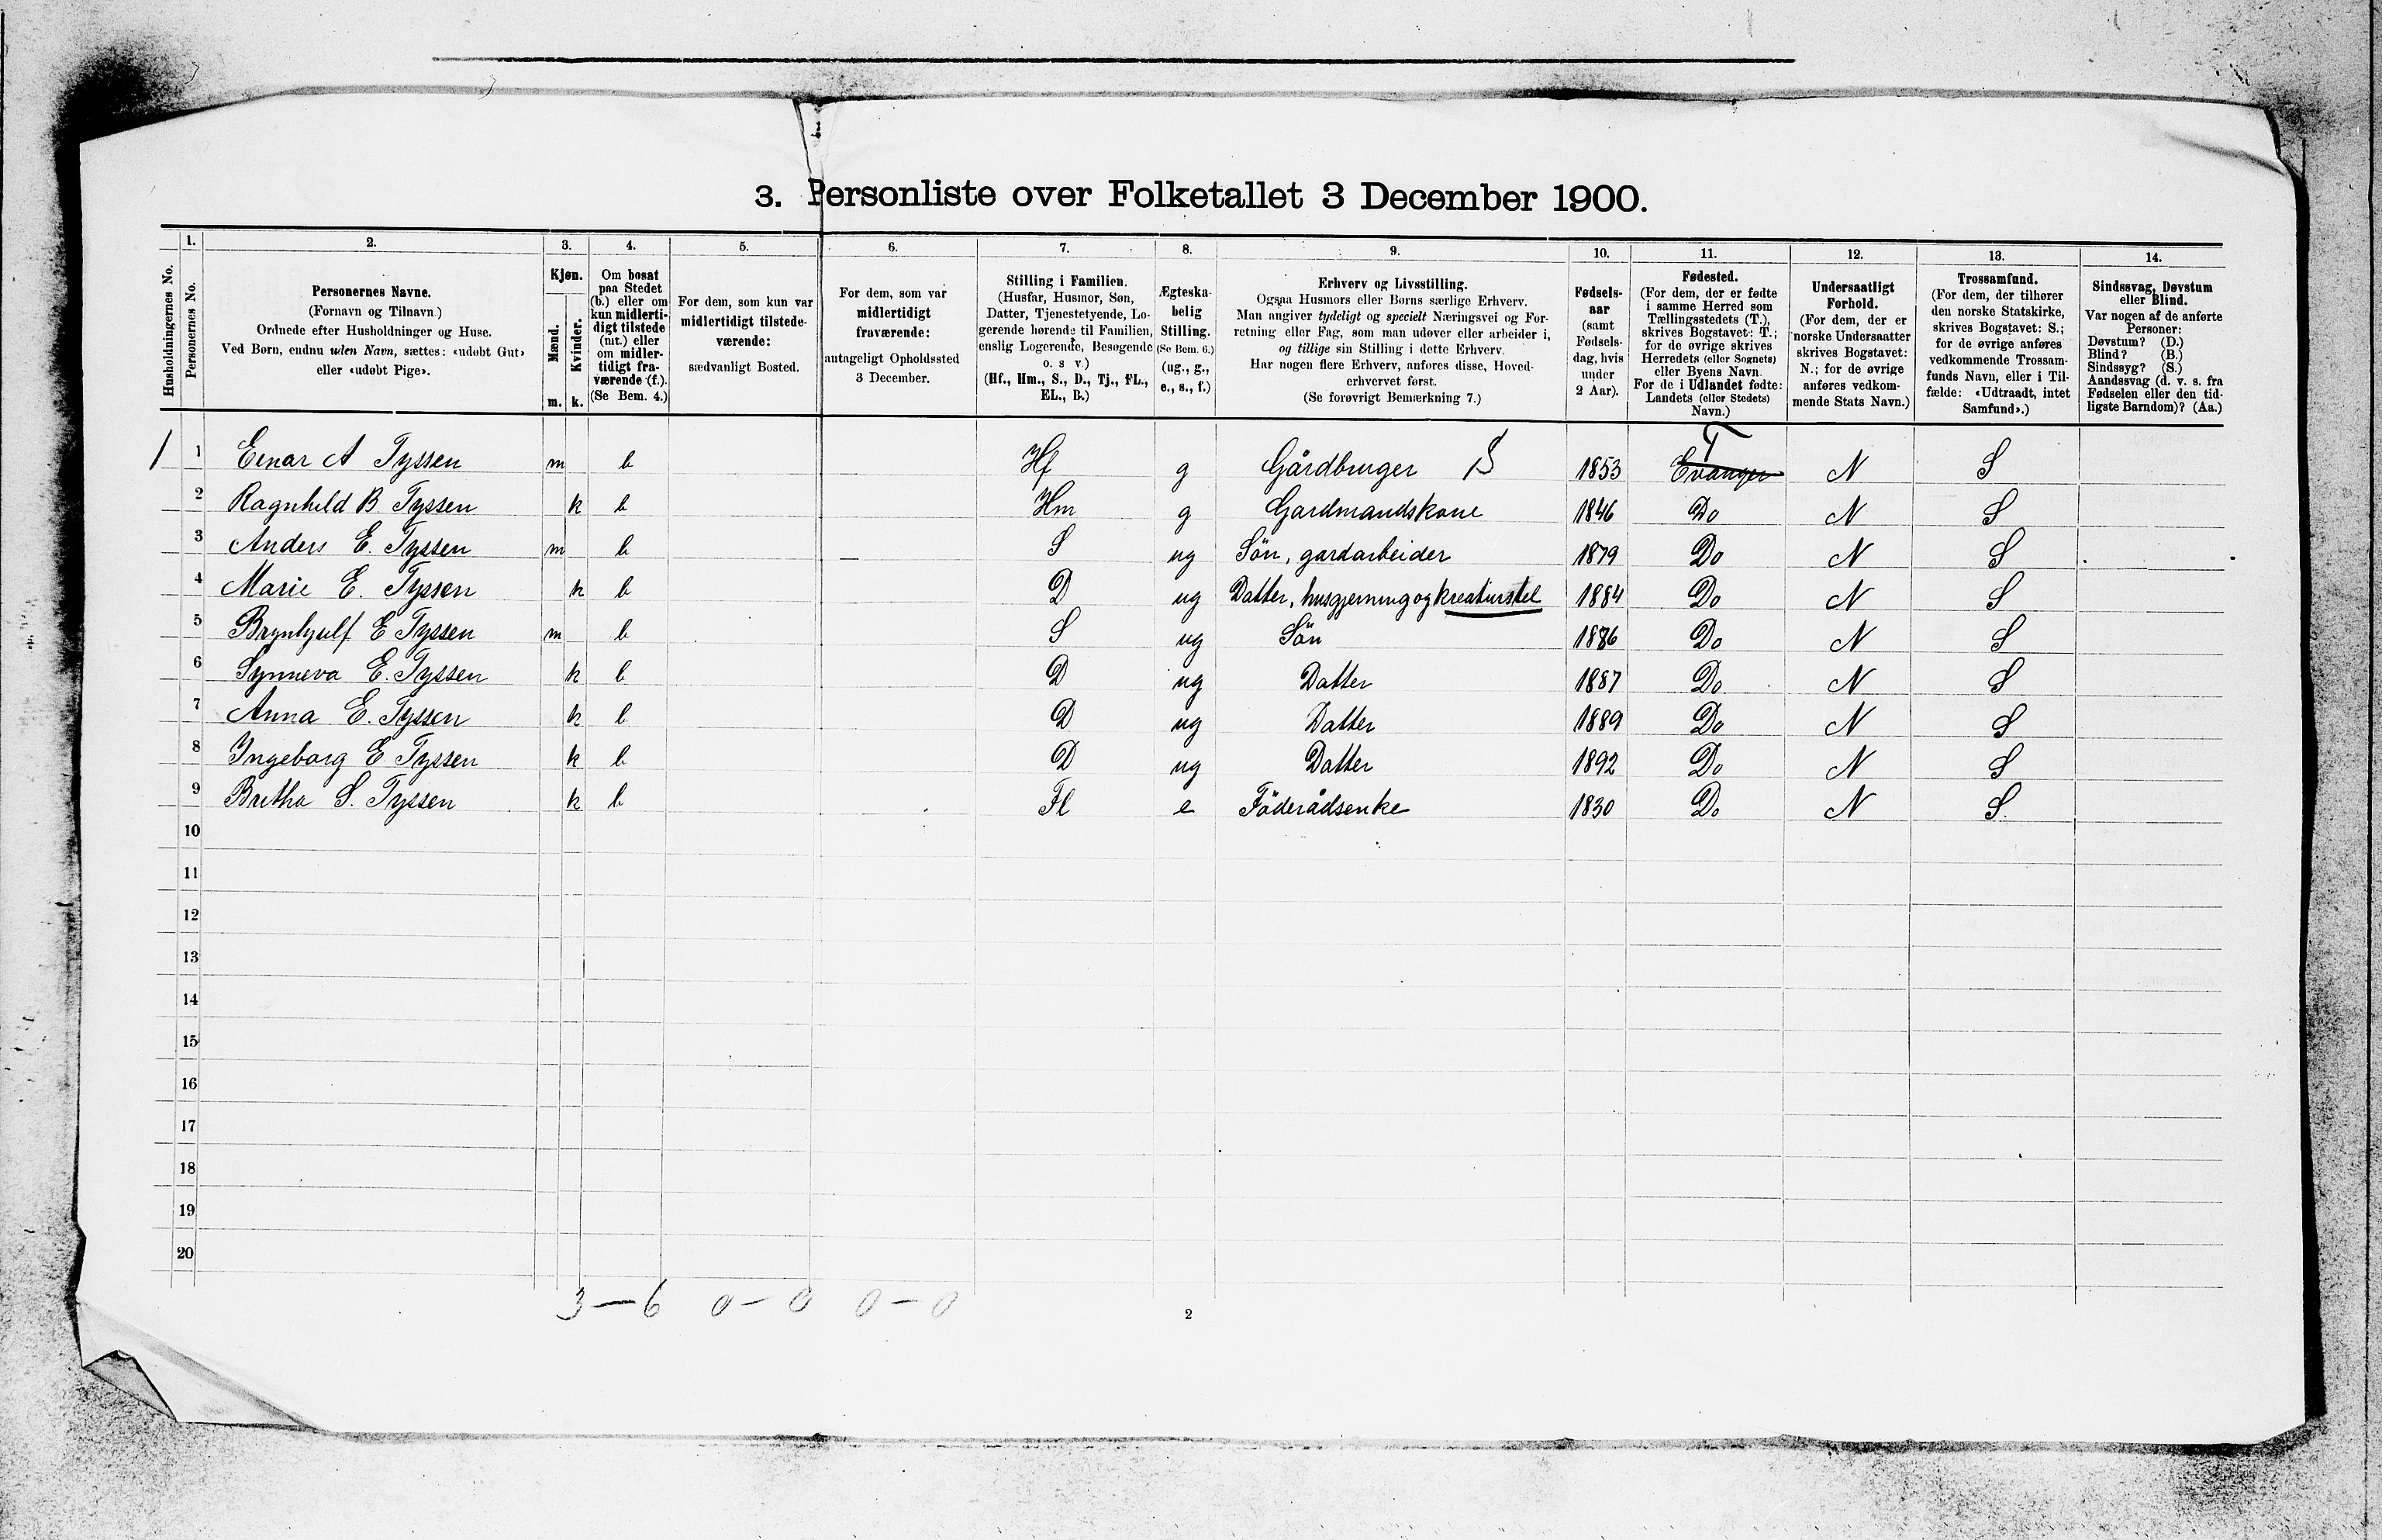 3. Personliste over Folketallet 3 December 1900.
1. 2. 3. 4. 5. 6. 7. 8. 9. 10. 11. 12. 13. 14.
Husholdningernes No.
Personernes No.
Personernes Navne.
(Fornavn og Tilnavn)
Ordnede efter Husholdninger og Huse.
Ved Børn, endnu uden Navn, sættes: «udøbt Gut»
eller «udøbt Pige».
Kjøn.
Mænd.
Kvinder.
m. k.
Om bosat
paa Stedet
(b.) eller om
kun midlerti-
digt tilstede
(mt.) eller
om midler-
tidigt fra-
værende (f.).
(Se Bem. 4.)
For dem, som kun var
midlertidigt tilstede-
værende:
sædvanligt Bosted.
For dem, som var
midlertidigt
fraværende:
antageligt Opholdssted
3 December.
Stilling i Familien.
(Husfar, Husmor, Søn,
Datter, Tjenestetyende, Lo-
gerende hørende til Familien,
enslig Logerende, Besøgende
o. s v.)
(Hf., Hm., S., D., Tj., FL.,
EL., B.)
Ægteska-
belig
Stilling.
(Se Bem. 6.)
(ug., g.,
e., s., f.)
Erhverv og Livsstilling.
Ogsaa Husmors eller Børns særlige Erhverv.
Man angiver tydeligt og specielt Næringsvei og For-
retning eller Fag, som man udøver eller arbeider i,
og tillige sin Stilling i dette Erhverv.
Har nogen flere Erhverv, anføres disse, Hoved-
erhvervet først.
(Se forøvrigt Bemærkning 7.)
Fødsels-
aar
(samt
Fødsels-
dag, hvis
under
2 Aar).
Fødested.
(For dem, der er fødte
i samme Herred som
Tællingsstedets (T.),
skrives Bogstavet: T.;
for de øvrige skrives
Herredets (eller Sognets)
eller Byens Navn.
For de i Udlandet fødte:
Landets (eller Stedets)
Navn.)
Undersaatligt
Forhold.
(For dem, der er
norske Undersaatter
skrives Bogstavet:
N.; for de øvrige
anføres vedkom-
mende Stats Navn.)
Trossamfund.
(For dem, der tilhører
den norske Statskirke,
skrives Bogstavet: S.;
for de øvrige anføres
vedkommende Trossam-
funds Navn, eller i Til-
fælde: «Udtraadt, intet
Samfund».)
Sindssvag, Døvstum
eller Blind.
Var nogen af de anførte
Personer:
Døvstum? (D.)
Blind? (B.)
Sindssyg? (S.)
Aandssvag (d. v. s. fra
Fødselen eller den tid-
ligste Barndom)? (Aa.)
T
1 1 Einar A Tyssen m b Hf g Gårdbruger S 1853 Evanger N S
2 Ragnhild B. Tyssen k b Hm g Gardmandskone 1846 Do N S
3 Anders E. Tyssen m b S ug Sön, gardarbeider 1879 Do N S
4 Marie E. Tyssen k b D ug Datter, husgjerning og kreaturstel 1884 Do N S
5 Brynhyulf E Tyssen m b S ug Sön 1886 Do N S
6 Synneva E. Tyssen k b D ug Datter 1887 Do N S
7 Anna E. Tyssen k b D ug Datter 1889 Do N S
8 Ingeborg E Tyssen k b D ug Datter 1892 Do N S
9 Britha S. Tyssen k b Fl e Föderådsenke 1830 Do N S.
10
11
12
13
14
15
16
17
18
19
20
3 — 6 0 — 0 0 — 0
2